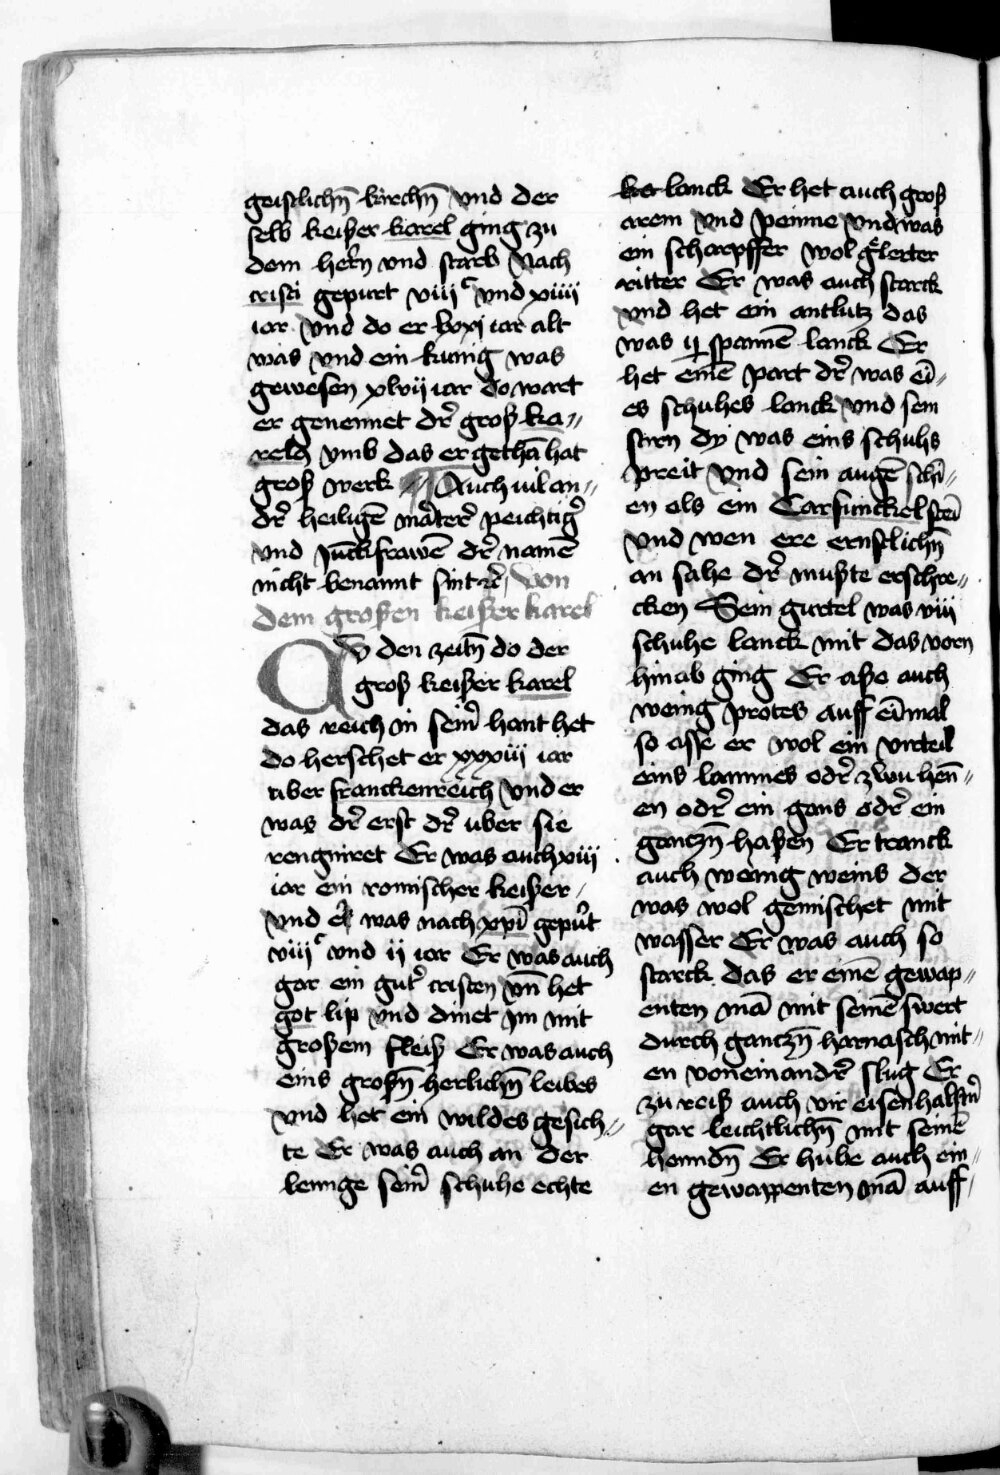 geistlichn̄ kirchn̄ vnd der
selb keiſzer karel ging zu
dem her̄n vnd starb Nach
cristi gepurt viiiᶜ vnd xiiii
iar vnd do er lxxj iar alt
was vnd ein kunig was
gewesen xlvij iar do wart
er genennet dr̄ groſz ka〃
relꝰ vmb das er gethā hat
groſz werk 〃 Auch vil an〃
dr̄ heiligē marterͤ peichtigͤ
vnd Junckfrawē dr̄ namē
nicht benannt sint ꝛc̄ Von
dem groſzen keiſzer karel
Aw den zeitn̄ do der
groſz keiſzer karel
das reich in seinͤ hant het
do herschet er xxxiii iar
vber franckenreich vnd er
was dr̄ erst dr̄ uber sie
rengniret Er was auch xiii
iar ein romischer keiſzer
vnd was nach xp̄i gepūrt
viiiᶜ vnd ii iar Er was auch
gar ein gutͤ cristen vn̄ het
got lip vnd dinet Im mit
groſzem fleiſz Er was auch
eins groſzn̄ herlichn̄ leibes
vnd het ein wildes gesich〃
te Er was auch an der
lennge seinͤ schuhe echte
lanck Er het auch groſz
arem vnd peinne vnd was
ein scharpffer wol gͤlerter
ritter Er was auch starck
vnd het ein antlutz das
was ij spannē lanck Er
het einē part dr̄ was eī〃
es schuhes lanck vnd sein
stirn dy was eins schuhs
preit vnd sein augē schi〃
en als ein Carfunckel steī
vnd wen ere ernstlichn̄
an sahe dr̄ muſzte erschre〃
cken Sein gurtel was viii
schuhe lanck mit das vorn
hinab ging Er aſze auch
wenig protes auff eīmal
so aſſe er wol ein virteil
eins lammes odr̄ zwu hen̄〃
en odr̄ ein gans odr̄ ein
gantzn̄ haſzen Er tranck
auch wenig weins der
was wol gemischet mit
wasser Er was auch so
starck das er einē gewap〃
enten mā mit seinē swert
durch gantzn̄ harnasch mit〃
en voneinandr̄ slug Er
zu reiſz auch vir eisen halstnͤ
gar leichtlichn̄ mit seinē
henndn̄ Er hube auch ein〃
en gewappenten mā auff